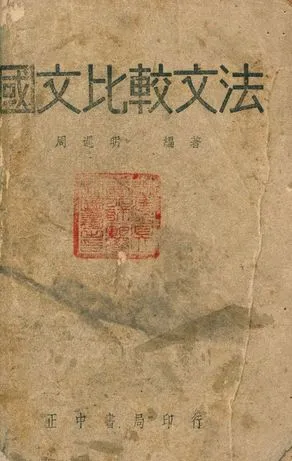 國文比較文法
周遲明 編著
正中書局印行